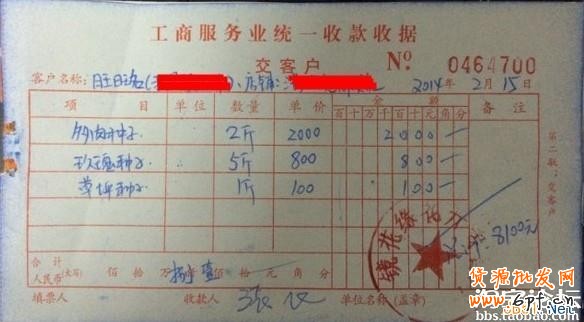 工商服务业统一收款收据
交客户
№ 0464700
客户名称：旺旺名( 店铺： 2014年2月15日
项目 单位 数量 单价 金额 备注
百十万千百十元角分
多肉种子 2斤 2000 2000
玫瑰种子 5斤 800 800
草坪种子 1斤 100 100
8100元
合计
人民币(大写) 佰 拾 万 捌仟 壹佰 拾 元 角 分
填票人 收款人 单位名称(盖章)
第二联：交客户
货源批发网
www.6pf.cn
bbs.taobao.com